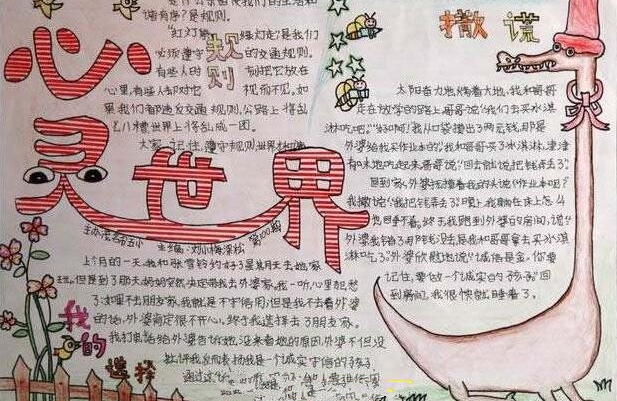 心灵世界
规则
是规则。
"红灯停 绿灯行"是我们
必须遵守 的交通规则。
有些人时 刻把它放在
心里,有些人却对它 视而不见,如
果我们都违反交通规则,公路上将乱
七八糟,世界上将乱成一团。
大家 记住,遵守规则
主编:刘小梅 第100期
我的选择
上个月的一天,我和张雪铃约好了星期天去她家
玩。但是到了那天妈妈突然决定带我去外婆家,我一听心里犯愁
了:如果不去朋友家,我就是不守信用,但是我不去看外婆
的话,外婆肯定很不开心。终于我选择去了朋友家。
我打电话给外婆告诉她,没来看她的原因,外婆不但没
批评我,反而表扬我是一个诚实守信的孩子。
通过这
撒谎
太阳奋力地烤着大地,我和哥哥
走在放学的路上,哥哥说:"我们去买冰淇
淋吃吧。""好啊!"我从口袋掏出了两元钱,那是
外婆给我买作业本的。"我和哥哥买了冰淇淋,津津
有味地吃起来,哥哥说:"回去就说把钱弄丢了。"
回到家,外婆抚摸着我的头说:"作业本呢?"
我撒谎:"我把钱弄丢了。"晚上,我躺在床上怎么
也睡不着。终于我跑到外婆的房间,说:"
外婆我错了,那钱没丢是我和哥哥拿去买冰淇
淋吃了。"外婆欣慰地说:"诚信是金,你要
记住,要做一个诚实的孩子。"回
到房间,我很快就睡着了。